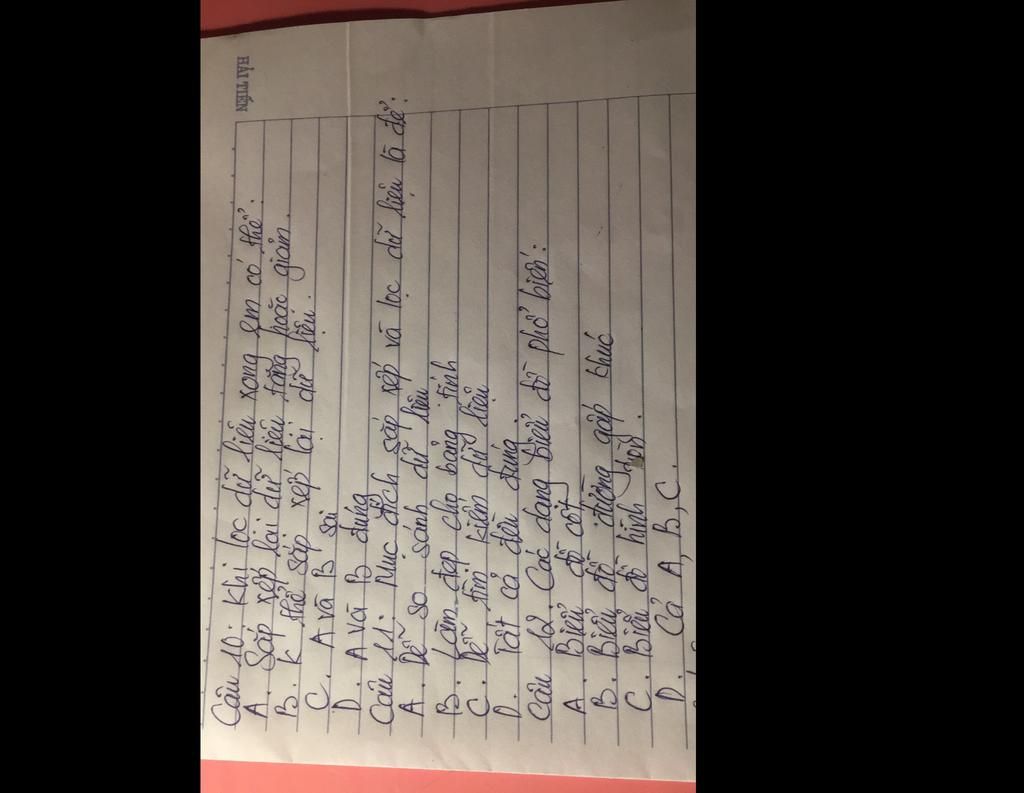 HẢI TIẾN
Câu 10: Khi lọc dữ liệu xong em có thể:
A. Sắp xếp lại dữ liệu tăng hoặc giảm.
B. K thể sắp xếp lại dữ liệu.
C. A và B sai
D. A và B đúng
Câu 11: Mục đích sắp xếp và lọc dữ liệu là để:
A. Dễ so sánh dữ liệu
B. Làm đẹp cho bảng tính
C. Dễ tìm kiếm dữ liệu
D. Tất cả đều đúng.
Câu 12: Các dạng biểu đồ phổ biến:
A. Biểu đồ cột
B. Biểu đồ đường gấp khúc
C. Biểu đồ hình tròn.
D. Cả A, B, C.